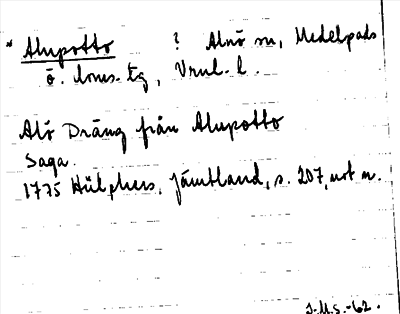 * Alupotto ? Alnö sn, Medelpads
ö. doms. tg, Vnul. l.
Alö Dräng från Alupotto
Saga.
1775 Hülphers, Jämtland, s. 207, not n.
J.M.S.-62.